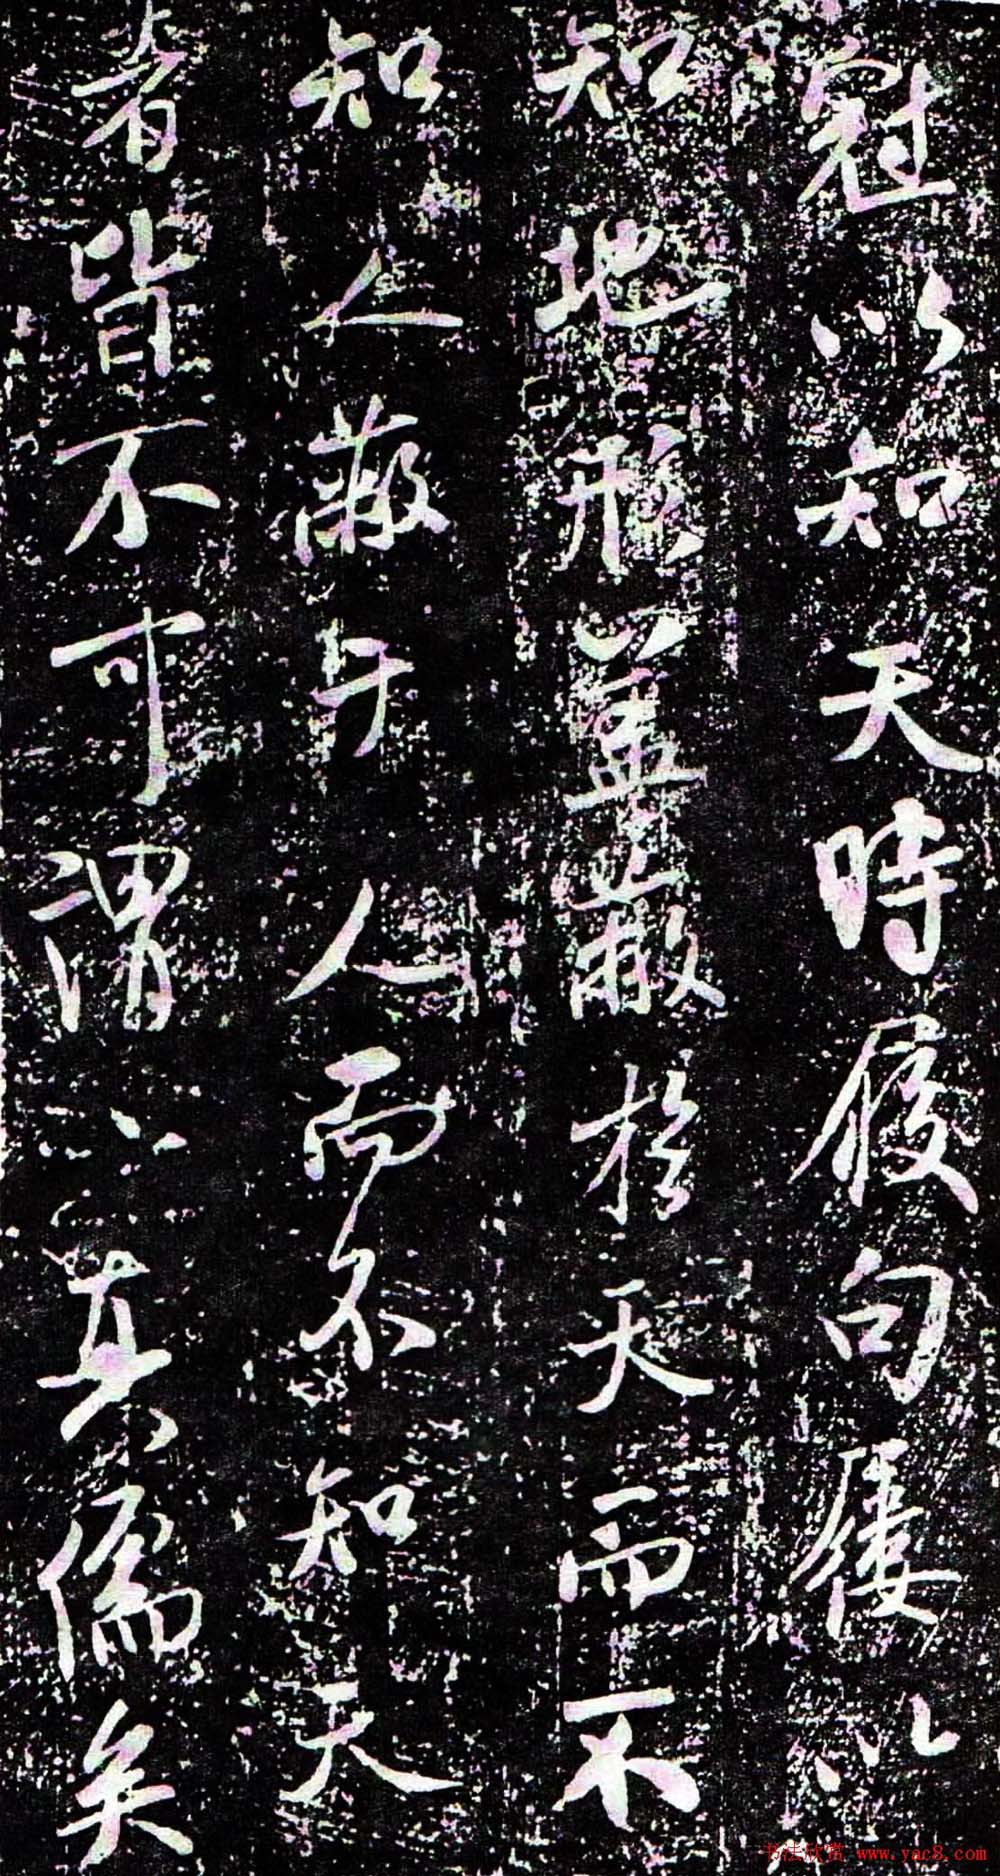 冠以知天時履句屨以
知地形蓋蔽於天而不
知人蔽于人而不知天
者皆不可謂之真儒矣
书法欣赏 www.yac8.com